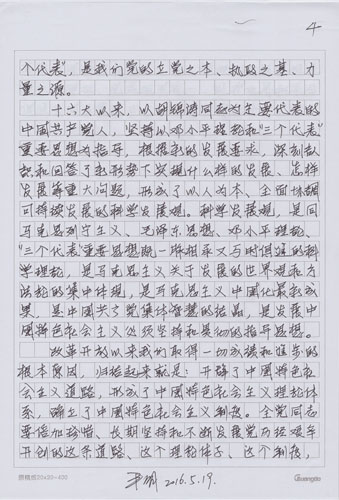 4
个代表”，是我们党的立党之本、执政之基、力
量之源。
十六大以来，以胡锦涛同志为主要代表的
中国共产党人，坚持以邓小平理论和“三个代表”
重要思想为指导，根据新的发展要求，深刻认
识和回答了新形势下实现什么样的发展、怎样
发展等重大问题，形成了以人为本、全面协调
可持续发展的科学发展观。科学发展观，是同
马克思列宁主义、毛泽东思想、邓小平理论、
“三个代表”重要思想既一脉相承又与时俱进的科
学理论，是马克思主义关于发展的世界观和方
法论的集中体现，是马克思主义中国化最新成
果，是中国共产党集体智慧的结晶，是发展中
國特色社会主义必须坚持和贯彻的指导思想。
改革开放以来我们取得一切成绩和進步的
根本原因，归结起来就是：开辟了中國特色社
会主义道路，形成了中國特色社会主义理论体
系，确立了中國特色社会主义制度。全党同志
要倍加珍惜、长期坚持和不断发展党历经艰辛
开创的这条道路、这个理论体系、这个制度，
2016.5.19.
20×20=400
Guangbo